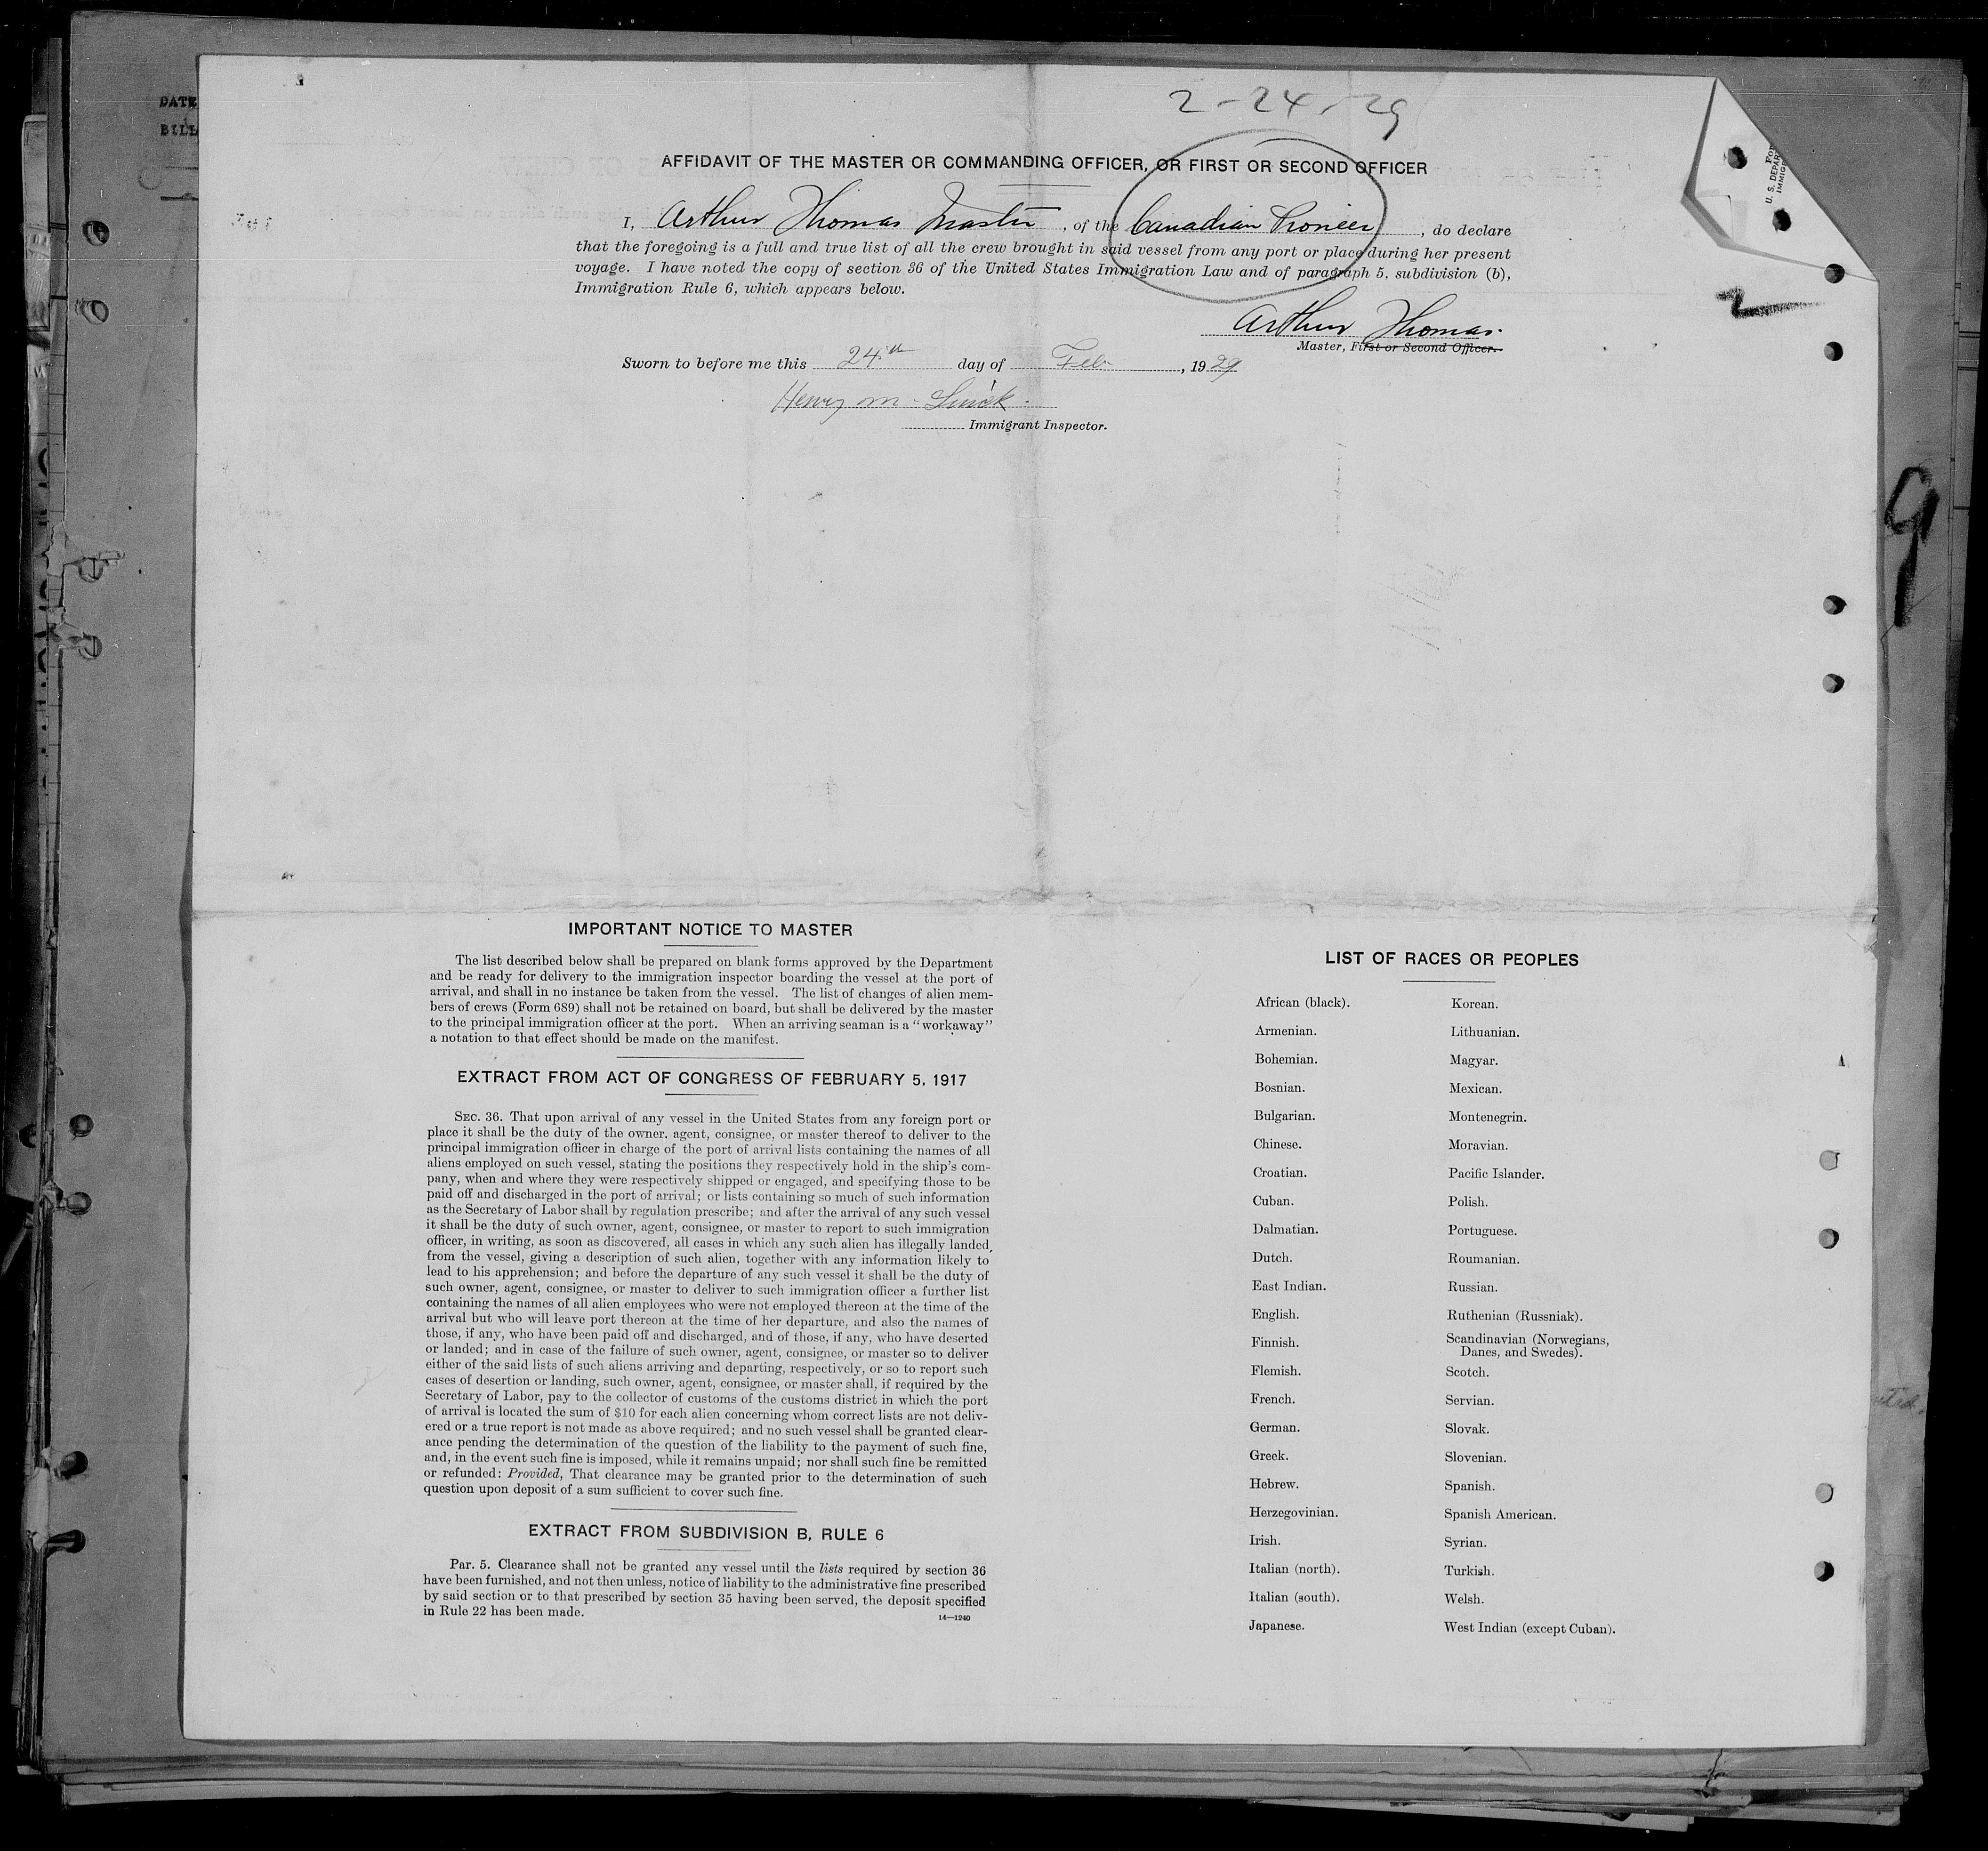 DATE
BILL
2-24-29
AFFIDAVIT OF THE MASTER OR COMMANDING OFFICER, OR FIRST OR SECOND OFFICER
I, Arthur Thomas Master, of the Canadian Pioneer, do declare
that the foregoing is a full and true list of all the crew brought in said vessel from any port or place during her present
voyage. I have noted the copy of section 36 of the United States Immigration Law and of paragraph 5, subdivision (b),
Immigration Rule 6, which appears below.
Arthur Thomas.
Master, First or Second Officer.
Sworn to before me this 24th day of Feb, 1929
Henry M.
Immigrant Inspector.
U. S. DEPAR
IMMIG
2
9
IMPORTANT NOTICE TO MASTER
The list described below shall be prepared on blank forms approved by the Department
and be ready for delivery to the immigration inspector boarding the vessel at the port of
arrival, and shall in no instance be taken from the vessel. The list of changes of alien mem-
bers of crews (Form 689) shall not be retained on board, but shall be delivered by the master
to the principal immigration officer at the port. When an arriving seaman is a "workaway"
a notation to that effect should be made on the manifest.
EXTRACT FROM ACT OF CONGRESS OF FEBRUARY 5, 1917
SEC. 36. That upon arrival of any vessel in the United States from any foreign port or
place it shall be the duty of the owner, agent, consignee, or master thereof to deliver to the
principal immigration officer in charge of the port of arrival lists containing the names of all
aliens employed on such vessel, stating the positions they respectively hold in the ship's com-
pany, when and where they were respectively shipped or engaged, and specifying those to be
paid off and discharged in the port of arrival; or lists containing so much of such information
as the Secretary of Labor shall by regulation prescribe; and after the arrival of any such vessel
it shall be the duty of such owner, agent, consignee, or master to report to such immigration
officer, in writing, as soon as discovered, all cases in which any such alien has illegally landed
from the vessel, giving a description of such alien, together with any information likely to
lead to his apprehension; and before the departure of any such vessel it shall be the duty of
such owner, agent, consignee, or master to deliver to such immigration officer a further list
containing the names of all alien employees who were not employed thereon at the time of the
arrival but who will leave port thereon at the time of her departure, and also the names of
those, if any, who have been paid off and discharged, and of those, if any, who have deserted
or landed; and in case of the failure of such owner, agent, consignee, or master so to deliver
either of the said lists of such aliens arriving and departing, respectively, or so to report such
cases of desertion or landing, such owner, agent, consignee, or master shall, if required by the
Secretary of Labor, pay to the collector of customs of the customs district in which the port
of arrival is located the sum of $10 for each alien concerning whom correct lists are not deliv-
ered or a true report is not made as above required; and no such vessel shall be granted clear-
ance pending the determination of the question of the liability to the payment of such fine,
and, in the event such fine is imposed, while it remains unpaid; nor shall such fine be remitted
or refunded: Provided, That clearance may be granted prior to the determination of such
question upon deposit of a sum sufficient to cover such fine.
EXTRACT FROM SUBDIVISION B, RULE 6
Par. 5. Clearance shall not be granted any vessel until the lists required by section 36
have been furnished, and not then unless, notice of liability to the administrative fine prescribed
by said section or to that prescribed by section 35 having been served, the deposit specified
in Rule 22 has been made.
14—1240
LIST OF RACES OR PEOPLES
African (black).
Armenian.
Bohemian.
Bosnian.
Bulgarian.
Chinese.
Croatian.
Cuban.
Dalmatian.
Dutch.
East Indian.
English.
Finnish.
Flemish.
French.
German.
Greek.
Hebrew.
Herzegovinian.
Irish.
Italian (north).
Italian (south).
Japanese.
Korean.
Lithuanian.
Magyar.
Mexican.
Montenegrin.
Moravian.
Pacific Islander.
Polish.
Portuguese.
Roumanian.
Russian.
Ruthenian (Russniak).
Scandinavian (Norwegians,
Danes, and Swedes).
Scotch.
Servian.
Slovak.
Slovenian.
Spanish.
Spanish American.
Syrian.
Turkish.
Welsh.
West Indian (except Cuban).